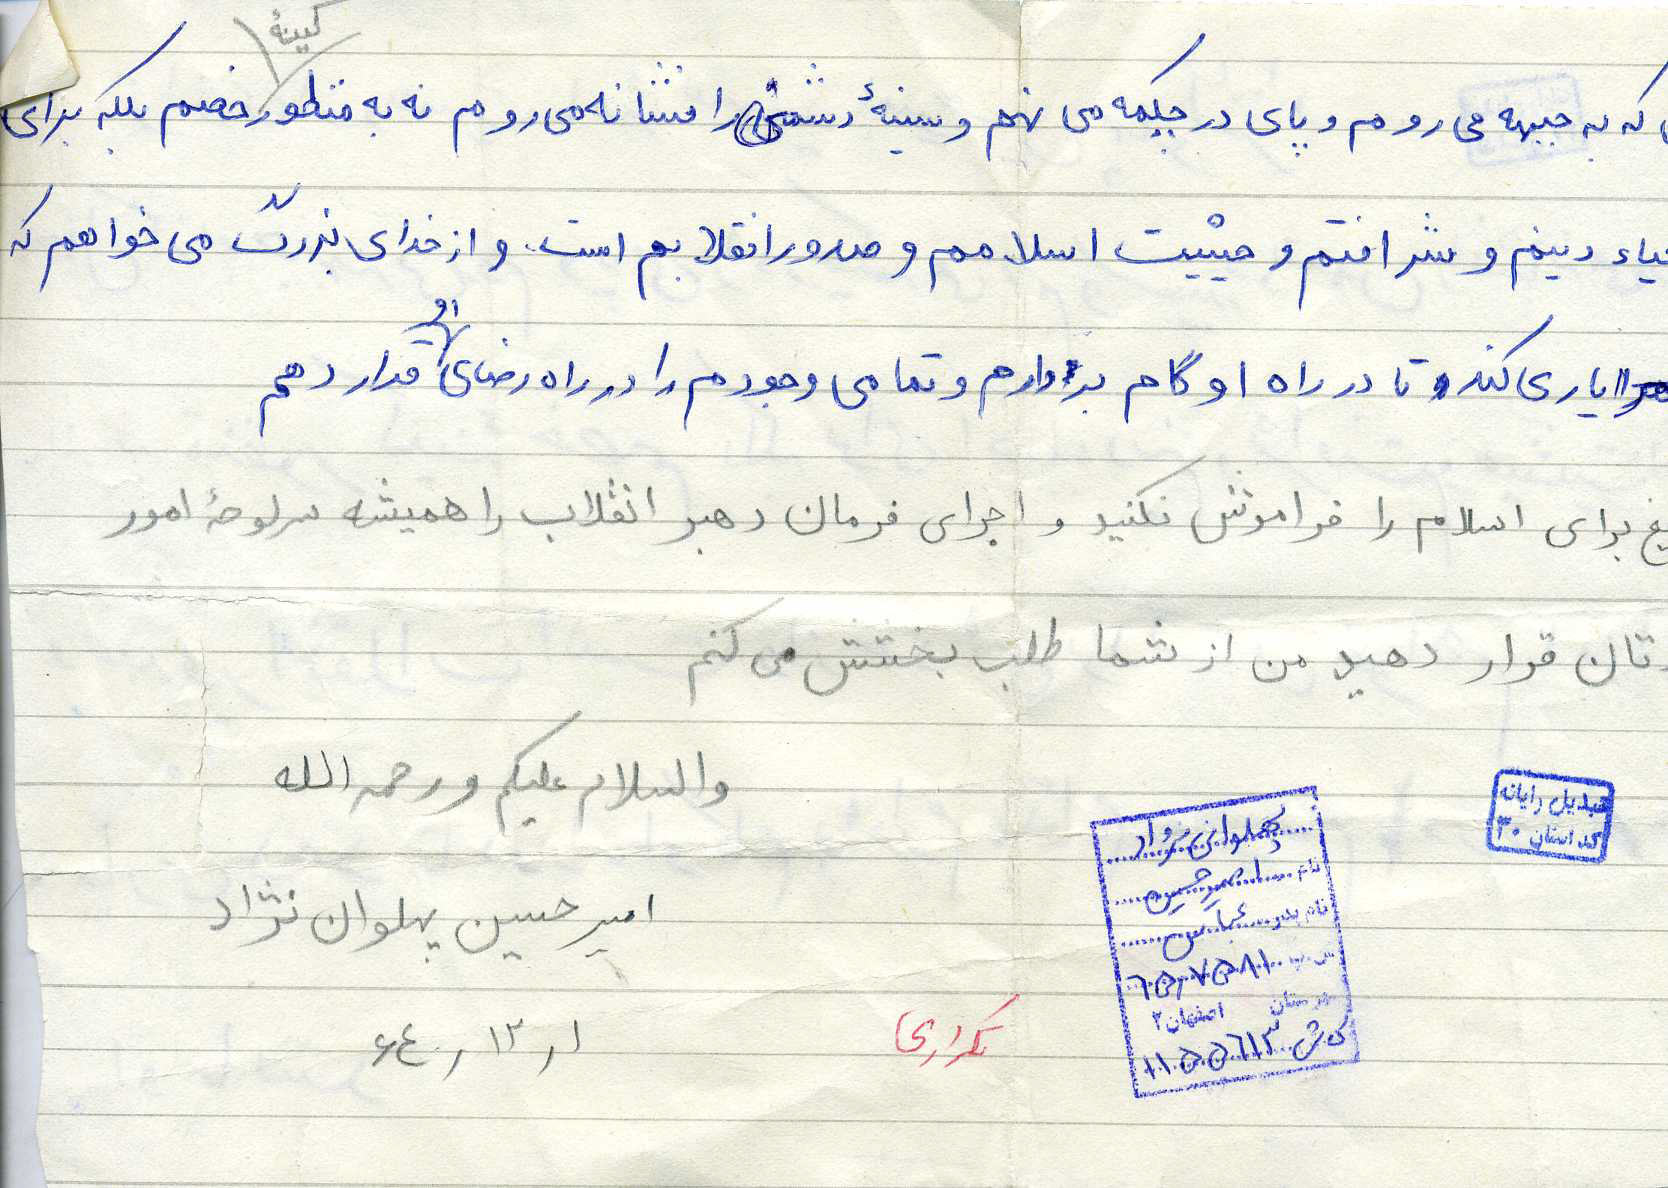 کینهٔ
که به جبهه می روم و پای در چکمه می نهم و سینهٔ دشمن را نشانه می روم نه به منظور خصم بلکه برای
دینم و شرافتم و حیثیت اسلامم و صدور انقلابم است. و از خدای بزرگ می خواهم که
او
یاری کند تا در راه او گام بردارم و تمامی وجودم را در راه رضای قرار دهم
برای اسلام را فراموش نکنید و اجرای فرمان رهبر انقلاب را همیشه سرلوحهٔ امور
تان قرار دهید من از شما طلب بخشش می کنم
والسلام علیکم و رحمه الله
امیر حسین پهلوان نژاد
۱ر۱۲ر۶٤
تکراری
تبدیل رایانه
کد استان ۳۰
پهلوانی نژاد
نام امیرحسین
نام پدر عباس
۶۵۰۷۵۸۱
شهرستان اصفهان ۲
کد ش ۱۱۰۵۵۶۱۳